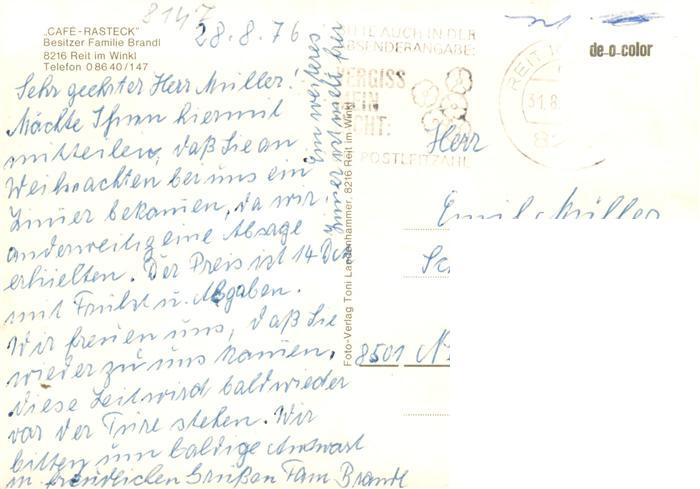 8147
„CAFÉ-RASTECK"
Besitzer Familie Brandl
8216 Reit im Winkl
Telefon 08640/147
28.8.76
Sehr geehrter Herr Müller!
Möchte Ihnen hiermit
mitteilen, daß Sie an
Weihnachten bei uns ein
Zimmer bekomen, da wir
anderweitig eine Absage
erhielten. Der Preis ist 14 DM
mit Frühst. u. Abgaben.
Wir freuen uns, daß Sie
wieder zu uns komen,
diese Zeit wird bald wieder
vor der Türe stehen. Wir
bitten um baldige Antwort
m. freundlichen Grüßen Fam. Brandl
Ein weiteres
Zimer ist nicht frei
Foto-Verlag Toni Lindenhammer, 8216 Reit im Winkl
BITTE AUCH IN DER
ABSENDERANGABE:
VERGISS
MEIN
NICHT:
POSTLEITZAHL
REIT IM
31.8.
82
de-o-color
Herr
Emil Müller
Sc
8501 N